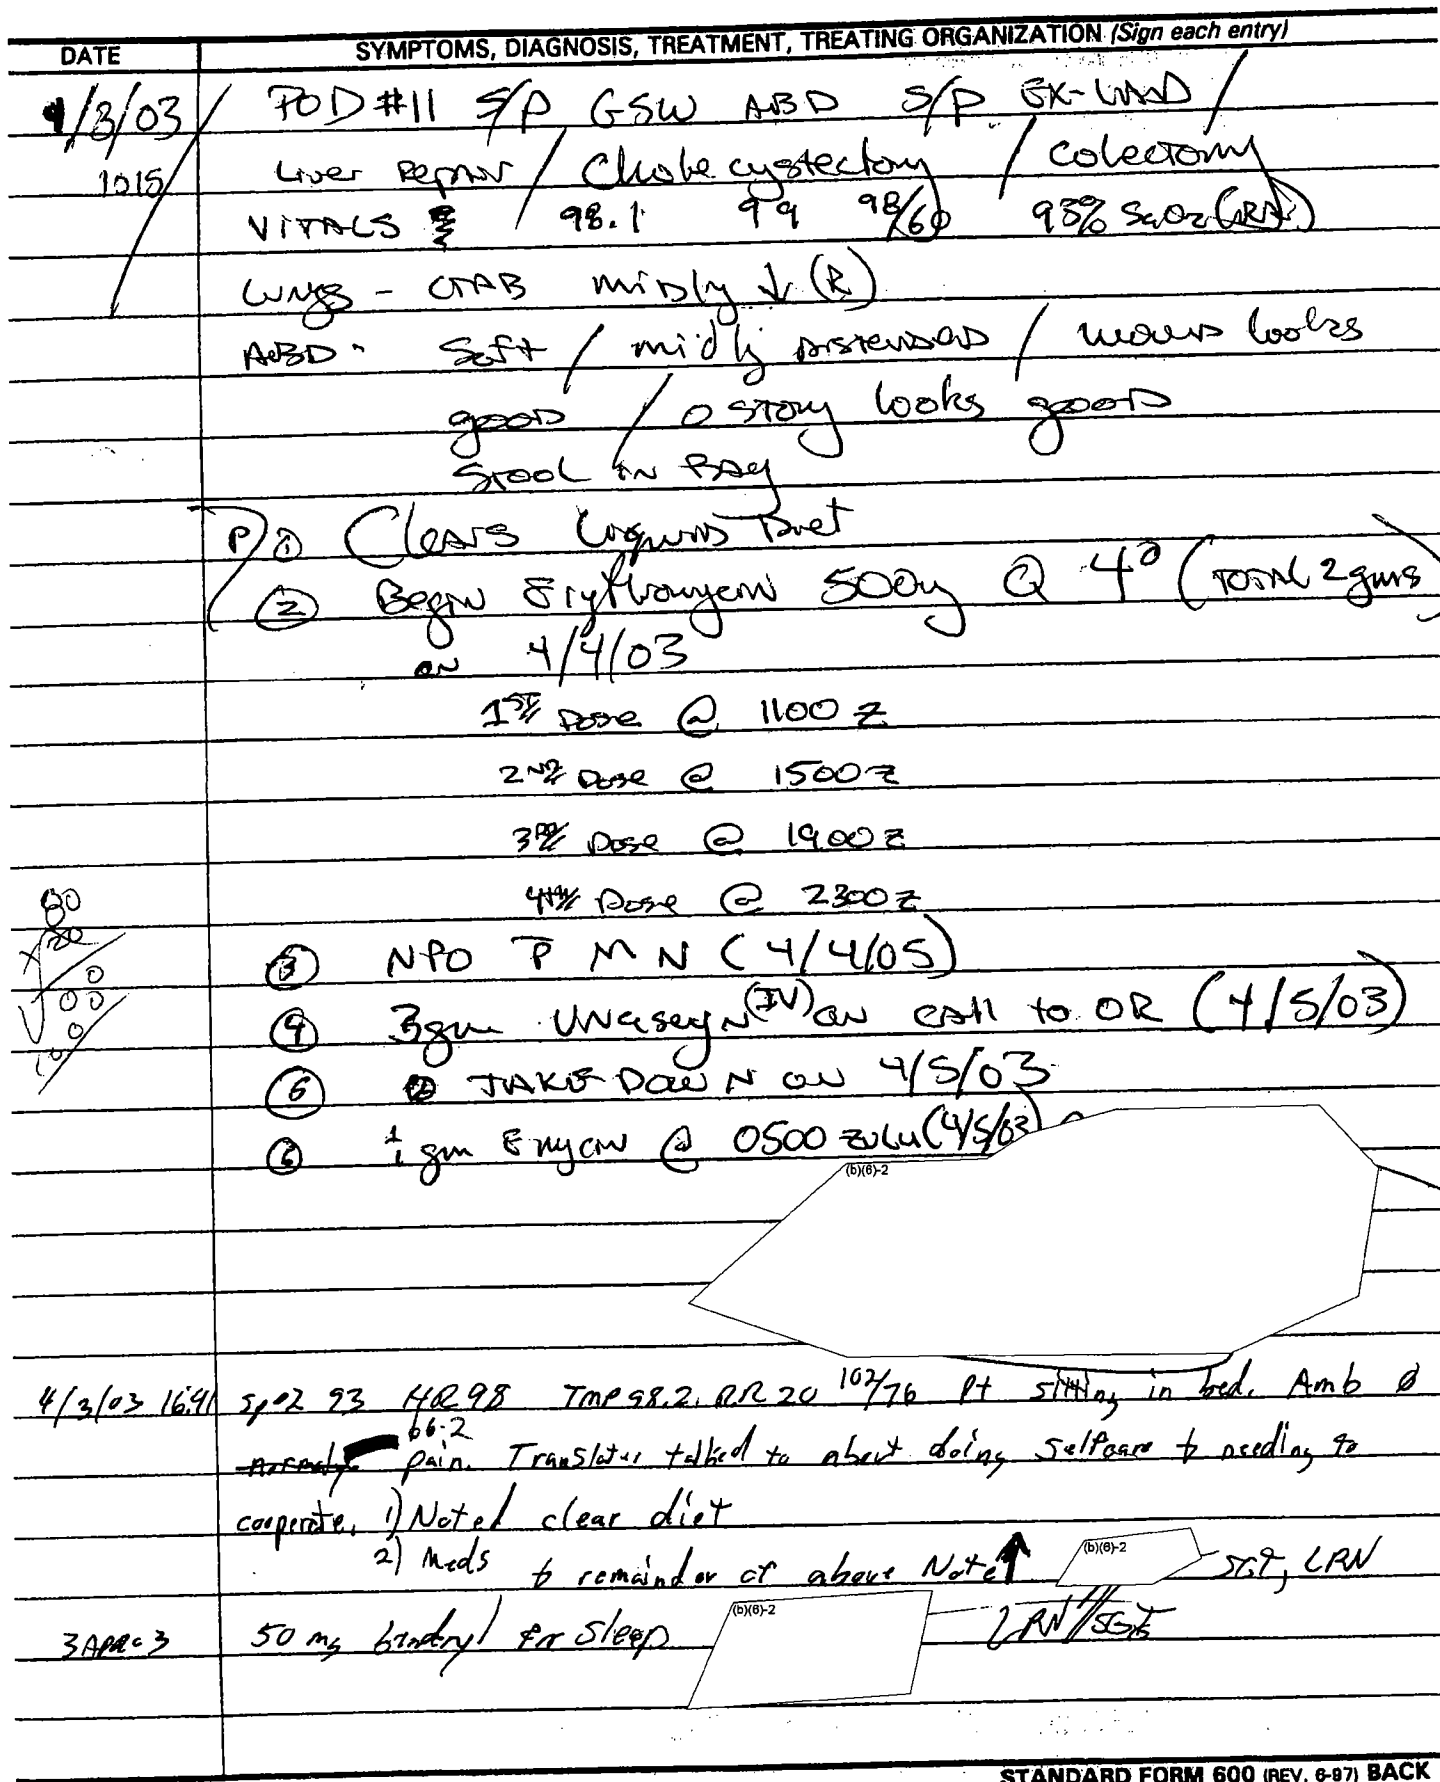 DATE SYMPTOMS, DIAGNOSIS, TREATMENT, TREATING ORGANIZATION (Sign each entry)
4/3/03 POD #11 S/P GSW ABD S/P EX-LAP /
1015 Liver Repair / Cholecystectomy / Colectomy
VITALS 98.1 99 98/60 93% SaO2 (RA)
Lungs - CTAB mildly ↓ (R)
ABD - Soft / midly distended / wound looks
good / ostomy looks good
Stool in Bag
P) ① Clears Liquids Diet
② Begin Erythromycin 500mg Q 4° (Total 2 gms)
on 4/4/03
1ST Dose @ 1100 Z
2ND Dose @ 1500 Z
3RD Dose @ 1900 Z
4TH Dose @ 2300 Z
③ NPO P MN (4/4/05)
④ 3gm Unasyn (IV) on call to OR (4/5/03)
⑤ TAKE DOWN on 4/5/03
⑥ 1 gm Emycin @ 0500 zulu (4/5/03)
(b)(6)-2
4/3/03 1641 SpO2 93 HR 98 Tmp 98.2 RR 20 102/76 Pt sitting in bed. Amb ø
b6-2
pain. Translator talked to about doing selfcare & needing to
cooperate. 1) Noted clear diet
2) Meds & remainder of above Note ↑ (b)(6)-2 SGT, LPN
3 APR 03 50 mg bendryl for sleep (b)(6)-2 LPN / SGT
STANDARD FORM 600 (REV. 6-97) BACK